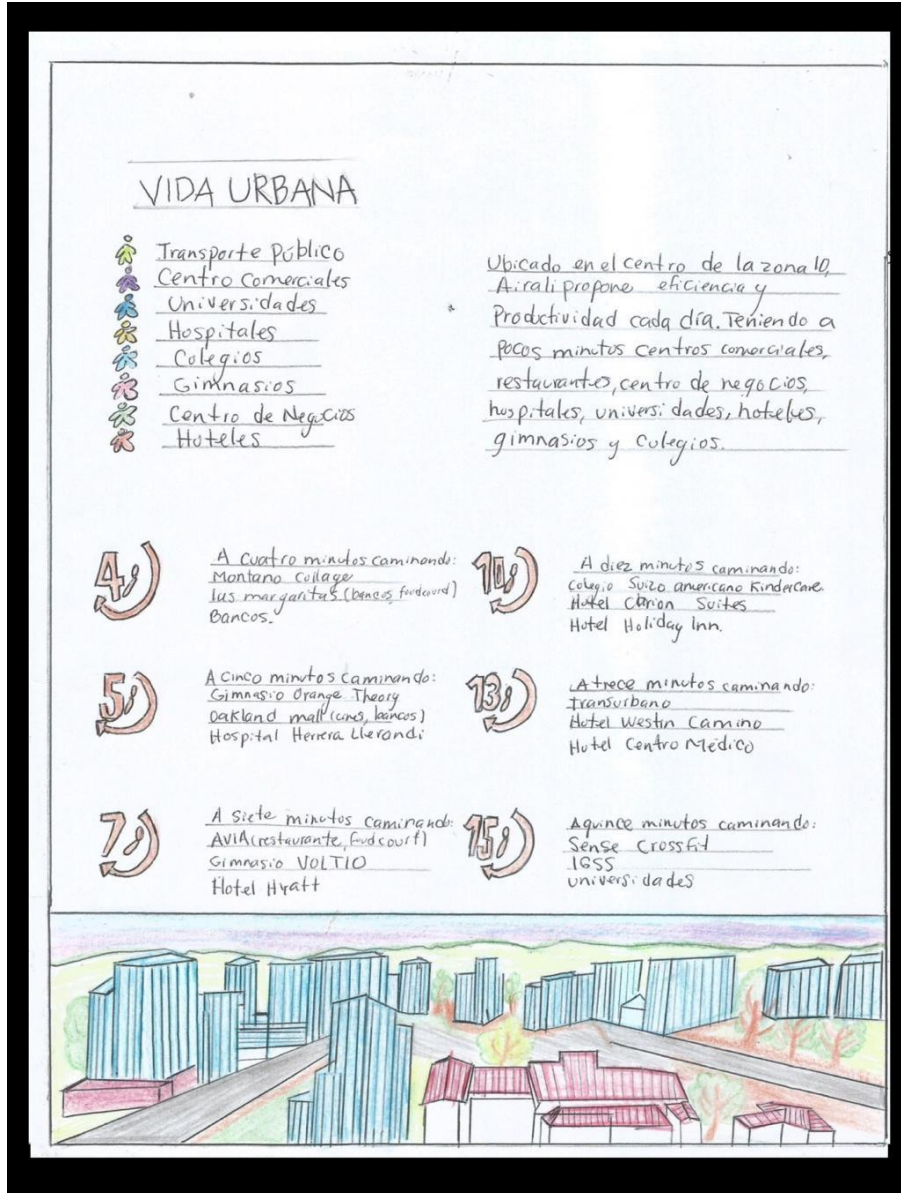 VIDA URBANA
Transporte Público
Centro Comerciales
Universidades
Hospitales
Colegios
Gimnasios
Centro de Negocios
Hoteles
Ubicado en el Centro de la zona 10,
Airali propone eficiencia y
Productividad cada día. Teniendo a
pocos minutos centros comerciales,
restaurantes, centro de negocios,
hospitales, universidades, hoteles,
gimnasios y Colegios.
4
A cuatro minutos caminando:
Montano Collage
las margaritas (bancos, foodcourd)
Bancos.
5
A Cinco minutos caminando:
Gimnasio Orange Theory
Oakland mall (cines, bancos)
Hospital Herrera Llerandi
7
A siete minutos caminando:
AVIA (restaurante, foodcourt)
Gimnasio VOLTIO
Hotel Hyatt
10
A diez minutos caminando:
Colegio Suizo americano Kindercare
Hotel Clarion Suites
Hotel Holiday Inn.
13
A trece minutos caminando:
transurbano
Hotel Westin Camino
Hotel Centro Médico
15
A quince minutos caminando:
Sense Crossfit
IGSS
universidades